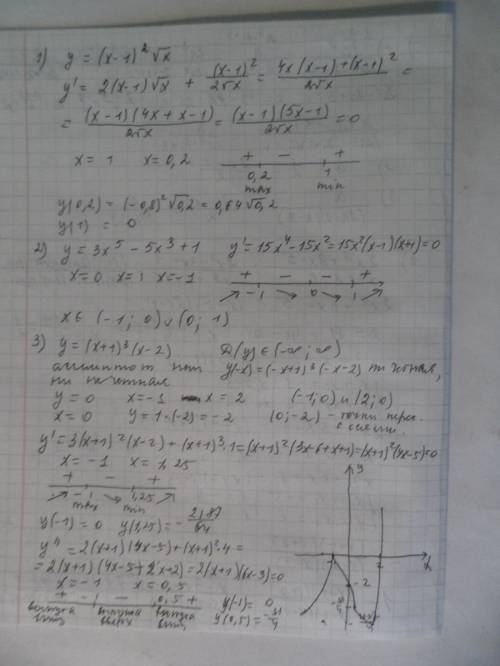 1) y = (x-1)² √x
y' = 2(x-1)√x + (x-1)²/2√x = 4x(x-1)+(x-1)²/2√x =
= (x-1)(4x+x-1)/2√x = (x-1)(5x-1)/2√x = 0
x = 1 x = 0,2
+ - +
0,2 1
max min
y(0,2) = (-0,8)²√0,2 = 0,64√0,2
y(1) = 0
2) y = 3x⁵ - 5x³ + 1 y' = 15x⁴ - 15x² = 15x²(x-1)(x+1) = 0
x = 0 x = 1 x = -1
+ - - +
-1 0 1
x ∈ (-1; 0) ∪ (0; 1)
3) y = (x+1)³(x-2) D(y) ∈ (-∞; ∞)
асимптот нет y(-x) = (-x+1)³(-x-2) ни
ни нечетная
y = 0 x = -1 x = 2 (-1;0) и (2;0)
x = 0 y = 1·(-2) = -2 (0; -2) - точки перес.
с осями
y' = 3(x+1)²(x-2) + (x+1)³·1 = (x+1)²(3x-6+x+1) = (x+1)²(4x-5) = 0
x = -1 x = 1,25
+ - +
-1 1,25
max min
y(-1) = 0 y(1,25) = -2187/
y'' = 2(x+1)(4x-5) + (x+1)²·4 =
= 2(x+1)(4x-5+2x+2) = 2(x+1)(6x-3) = 0
x = -1 x = 0,5
+ -1 - 0,5 +
выпукла выпукла выпукла
вниз вверх вниз
y(-1) = 0
y(0,5) = -81/
y
x
-1
2
-2